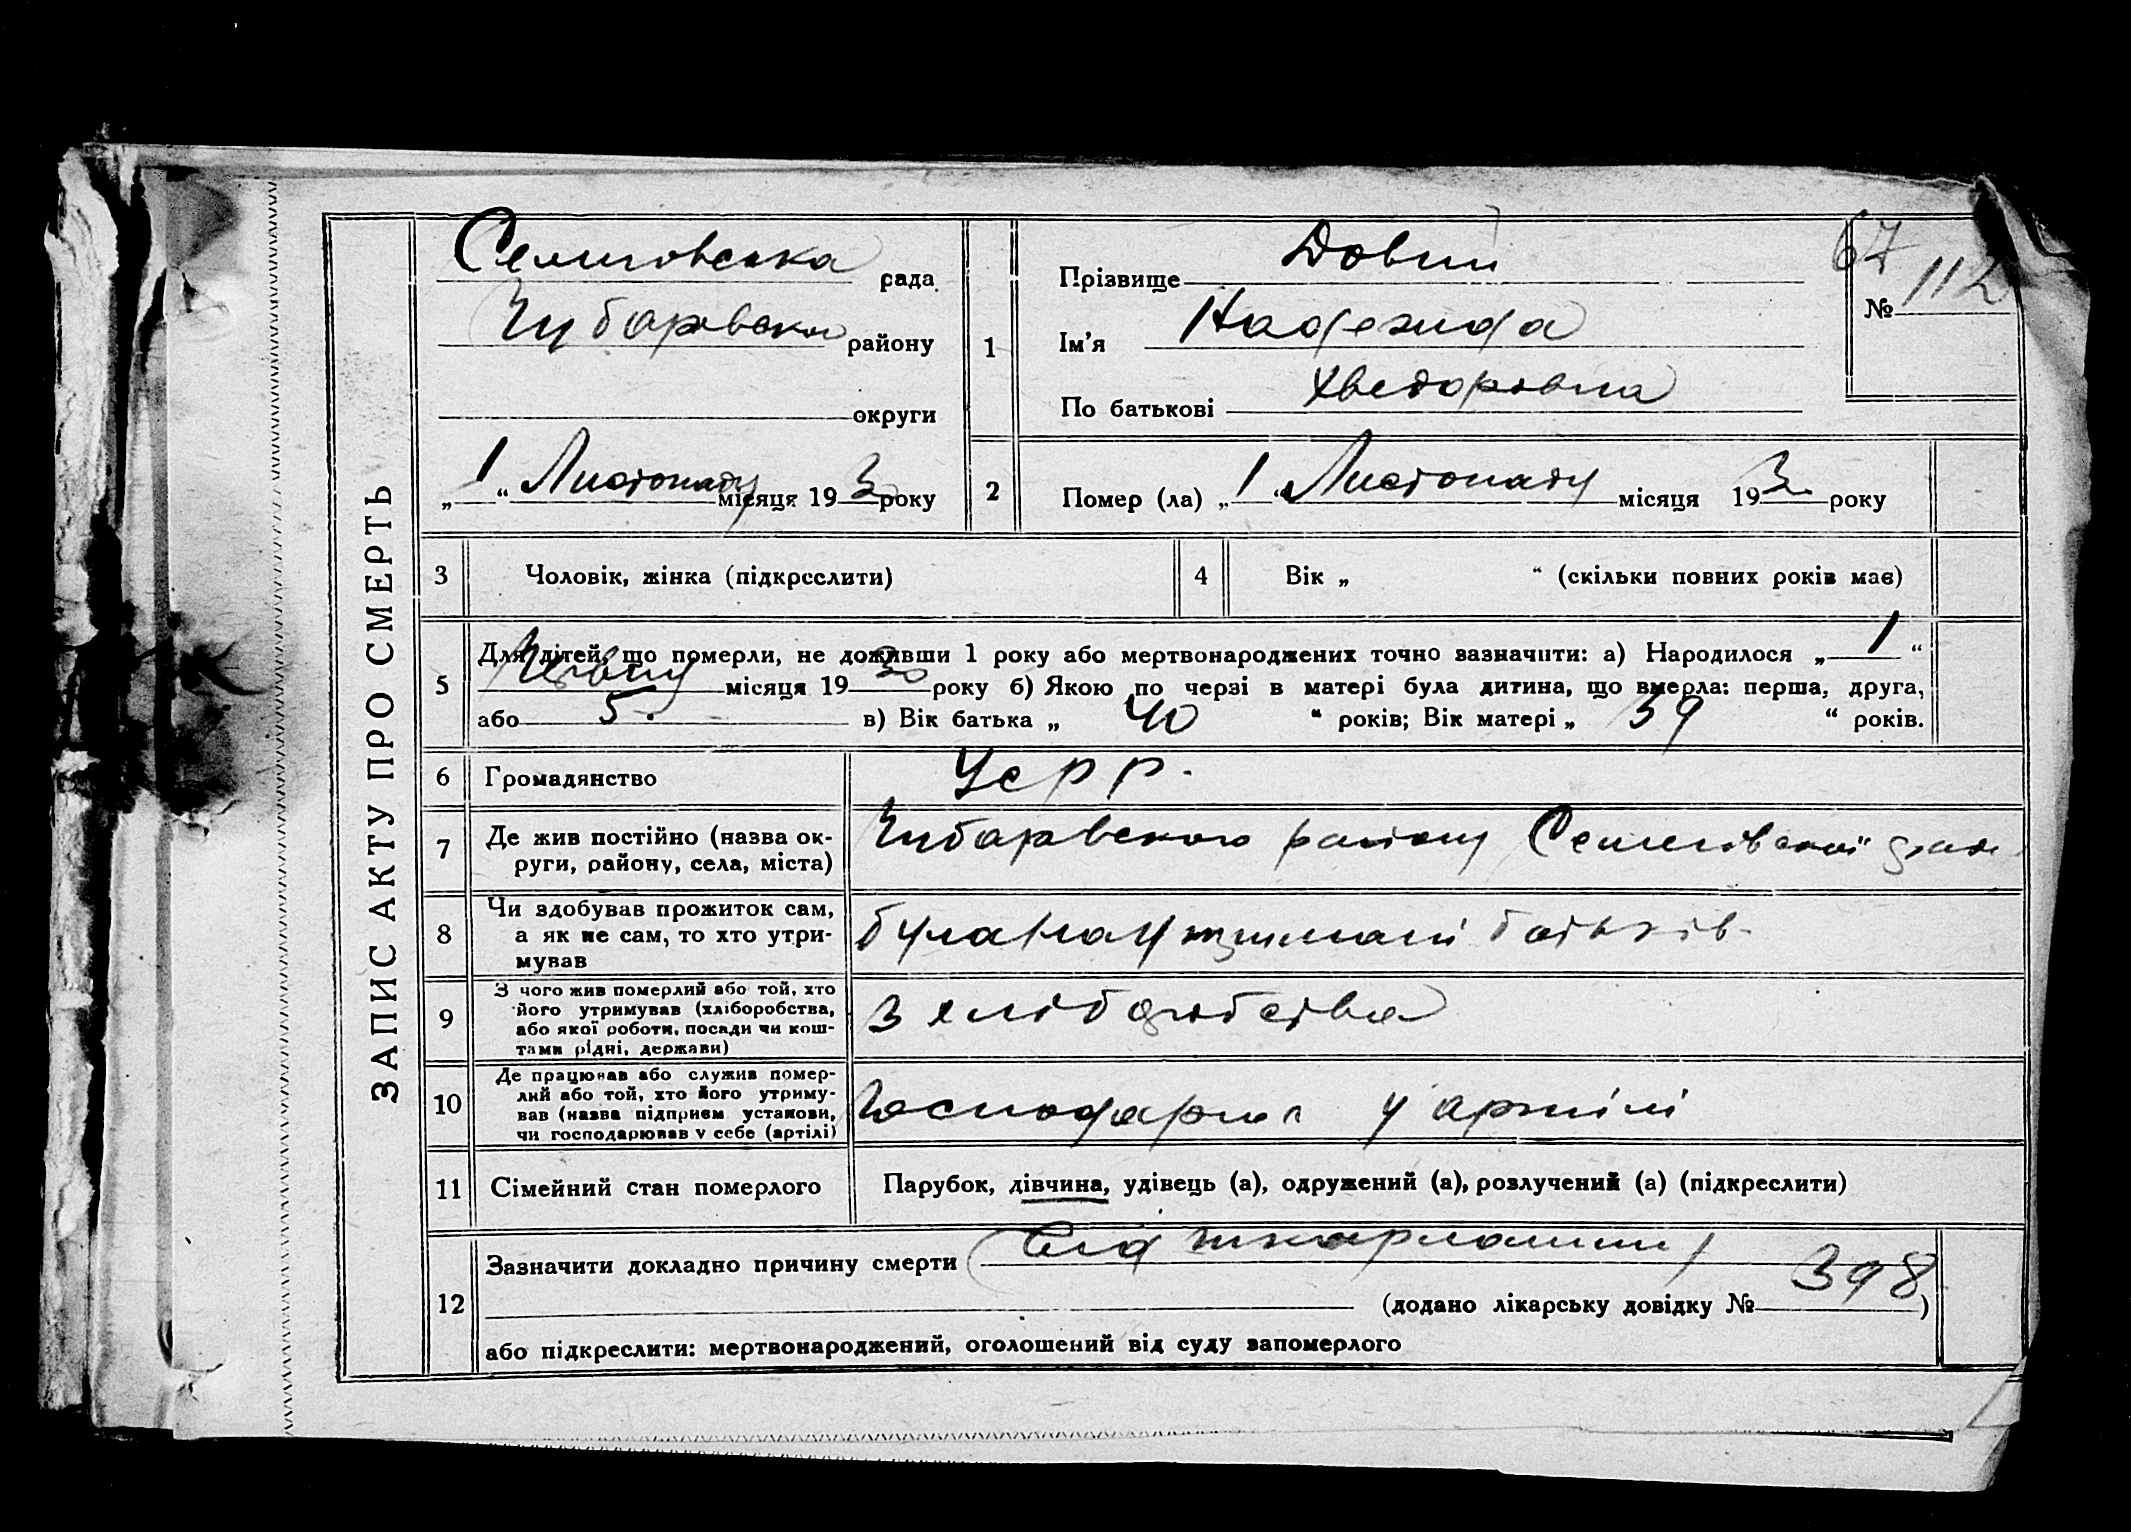 ЗАПИС АКТУ ПРО СМЕРТЬ
рада
Чубаревська району
округи
„ 1 “ Листопаду місяця 193 року
1
Прізвище Довгий
Ім'я Надежида
По батькові Хведоровна
67
№ 112
2
Помер (ла) „ 1 “ Листопаду місяця 193 року
3 Чоловік, жінка (підкреслити)
4 Вік „ “ (скільки повних років має)
5
Для дітей, що померли, не доживши 1 року або мертвонароджених точно зазначити: а) Народилося „ 1 “
місяця 1930 року б) Якою по черзі в матері була дитина, що вмерла: перша, друга,
або 5. в) Вік батька „ 40 “ років; Вік матері „ 39 “ років.
6 Громадянство УСРР.
7 Де жив постійно (назва ок-
руги, району, села, міста)
Чубаревского району
8 Чи здобував прожиток сам,
а як не сам, то хто утри-
мував
була на утриманні батьків
9 З чого жив померлий або той, хто
його утримував (хліборобства,
або якої роботи, посади чи кош-
тами рідні, держави)
З хліборобства
10 Де працював або служив помер-
лий або той, хто його утриму-
вав (назва підприєм установи,
чи господарював у себе (артілі)
у артілі
11 Сімейний стан померлого Парубок, дівчина, удівець (а), одружений (а), розлучений (а) (підкреслити)
12
Зазначити докладно причину смерти ( Від шкарлатини )
(додано лікарську довідку № 398 )
або підкреслити: мертвонароджений, оголошений від суду запомерлого